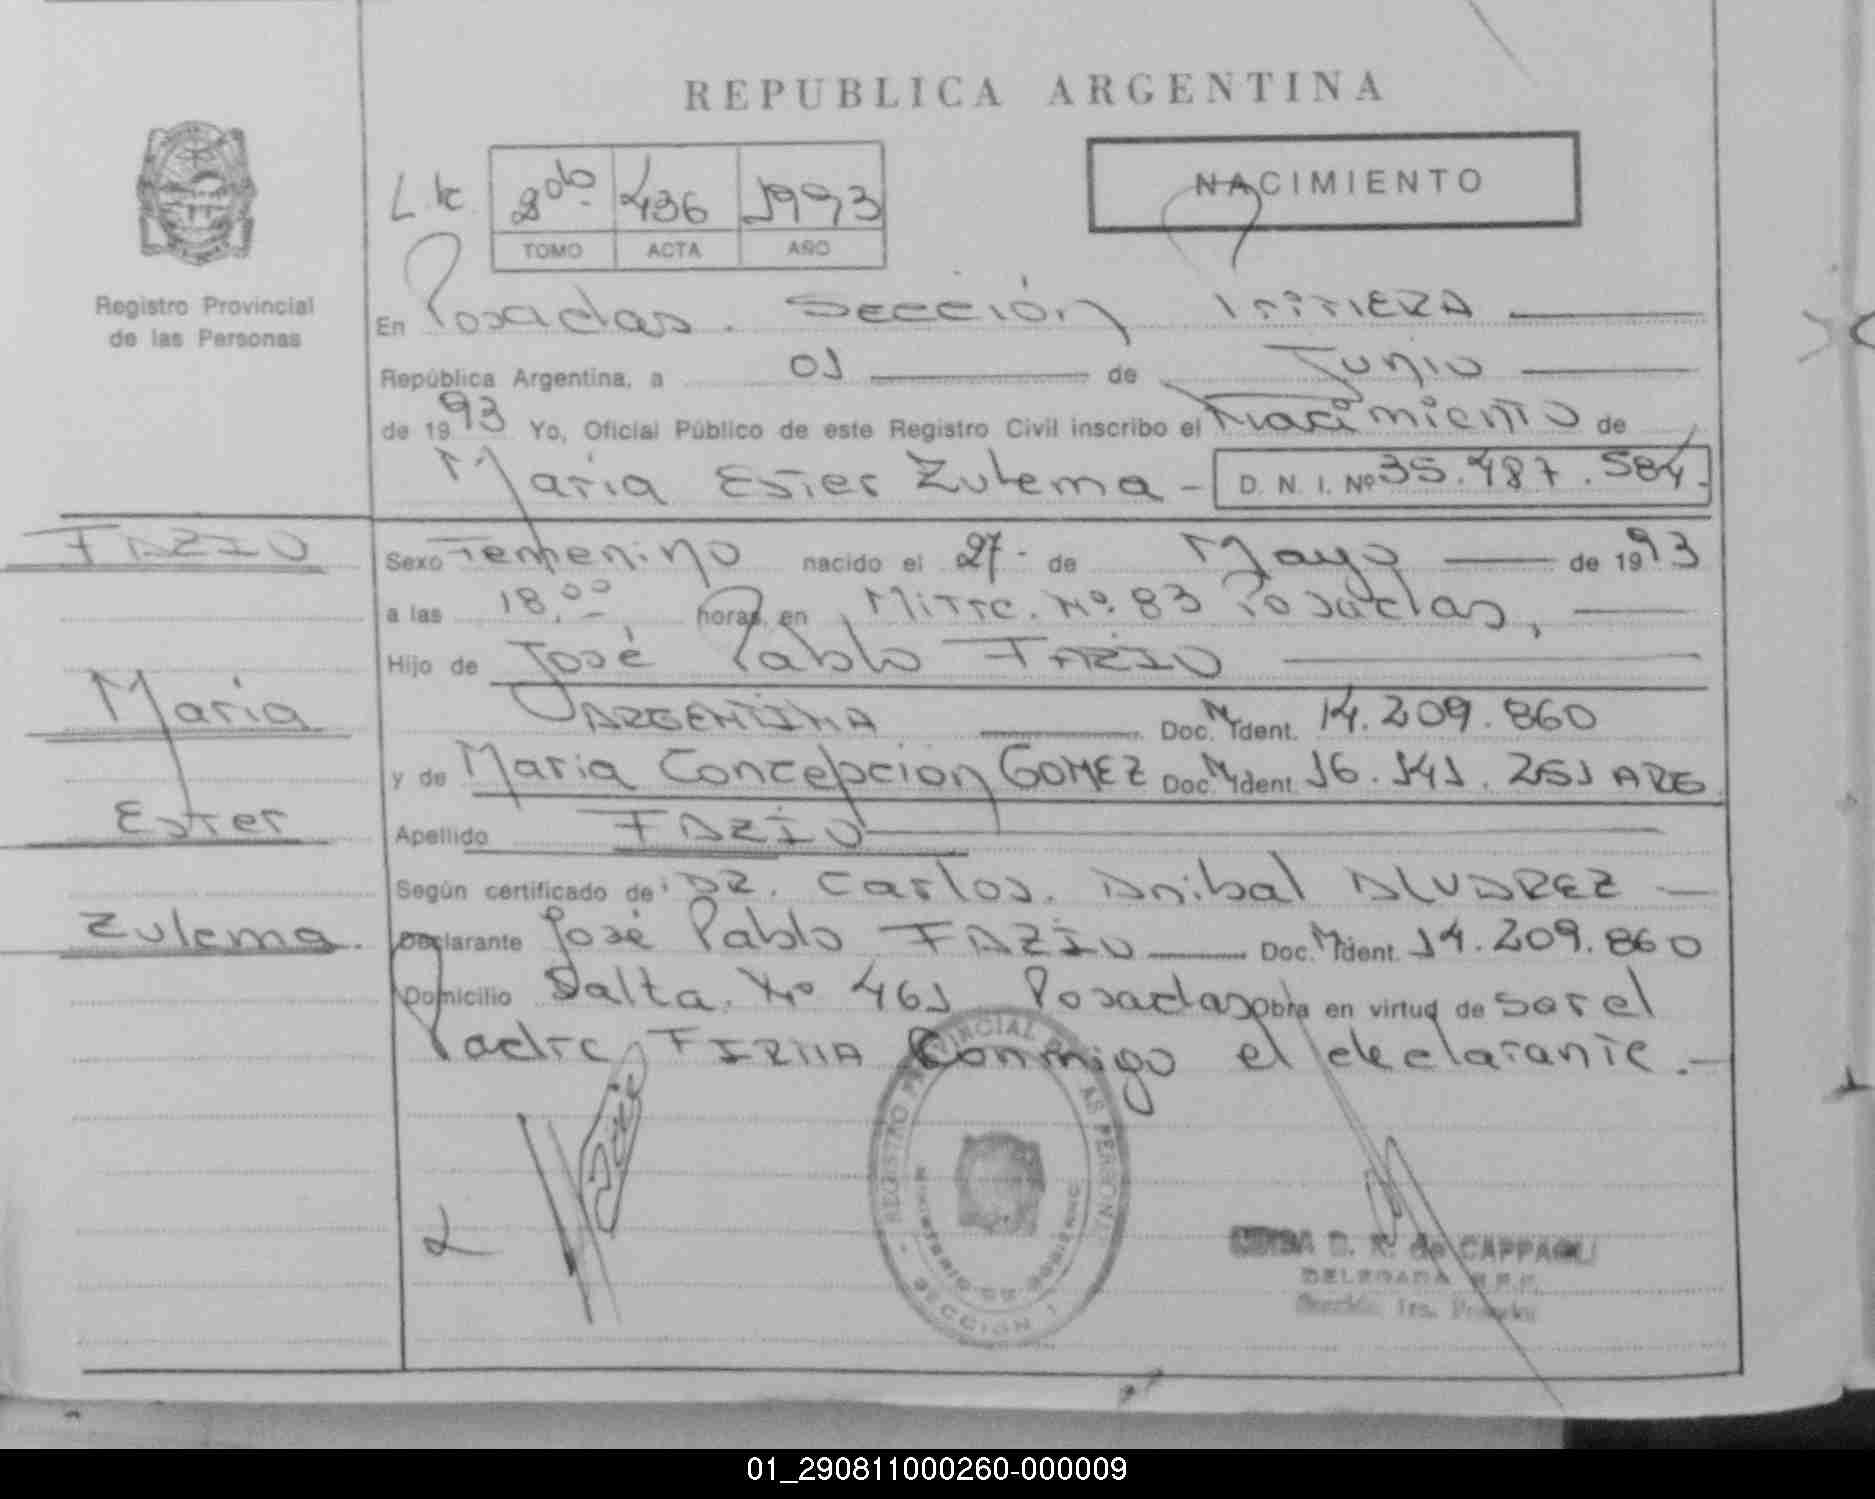 REPUBLICA ARGENTINA
NACIMIENTO
2do 436 1993
TOMO ACTA AÑO
Registro Provincial
de las Personas
En Posadas. Sección Primera
República Argentina, a 01 de Junio
de 1993 Yo, Oficial Público de este Registro Civil inscribo el Nacimiento de
Maria Ester Zulema - D. N. I. Nº 35.487.584.-
FAZIO
Sexo Femenino nacido el 27- de Mayo de 1993
a las 18,00 horas, en Mitre. Nº 83 Posadas,
Hijo de José Pablo FAZIO
Maria
ARGENTINA Doc. N Ident. 14.209.860
y de Maria Concepción GOMEZ Doc. N Ident. 16.141.251 ARG
Ester
Apellido FAZIO
Según certificado de: DR. Carlos. Anibal ALVAREZ
Zulema.
Declarante José Pablo FAZIO Doc. N Ident. 14.209.860
Domicilio Salta. Nº 461 Posadas Obra en virtud de ser el
Padre FIRMA Conmigo el declarante.-
REGISTRO PROVINCIAL DE LAS PERSONAS
MINISTERIO DE GOBIERNO
SECCION 1
D. R. de CAPPAGLI
DELEGADA R.P.P.
Sección 1ra. Posadas
01_290811000260-000009